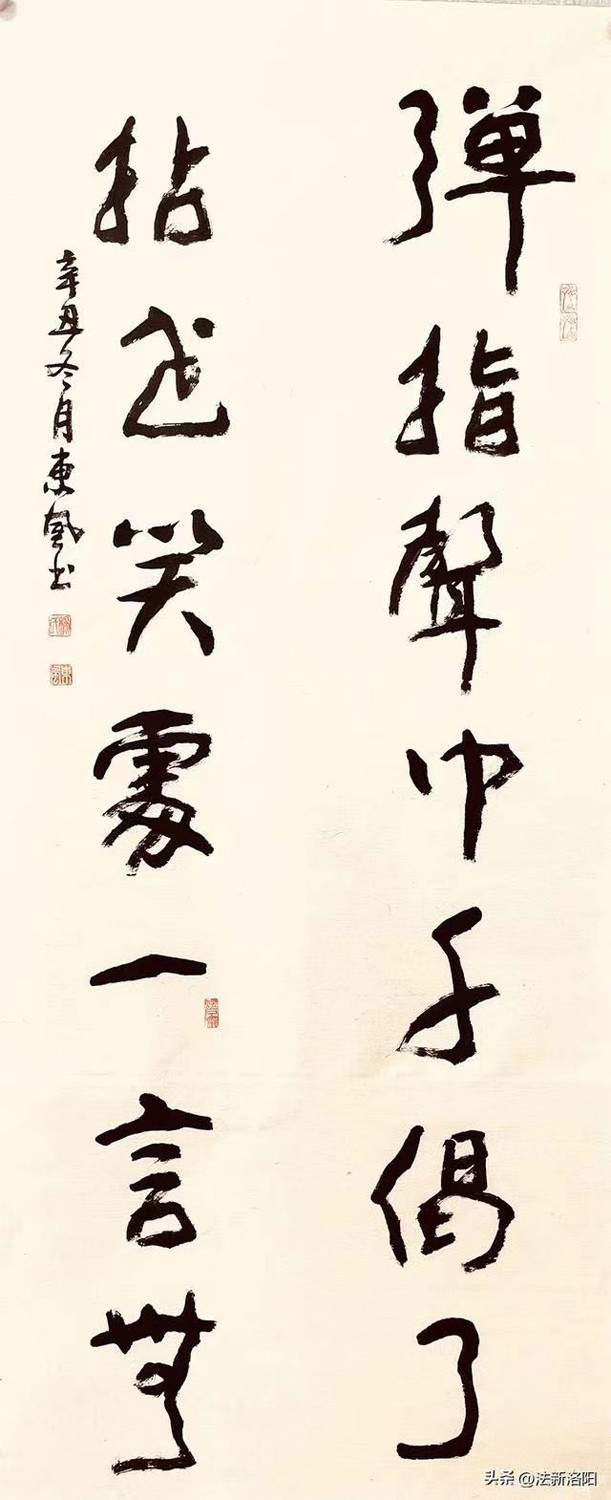 弹指聲中千偈了
拈花笑處一言無
辛丑冬月東風書
头条 @法新洛阳